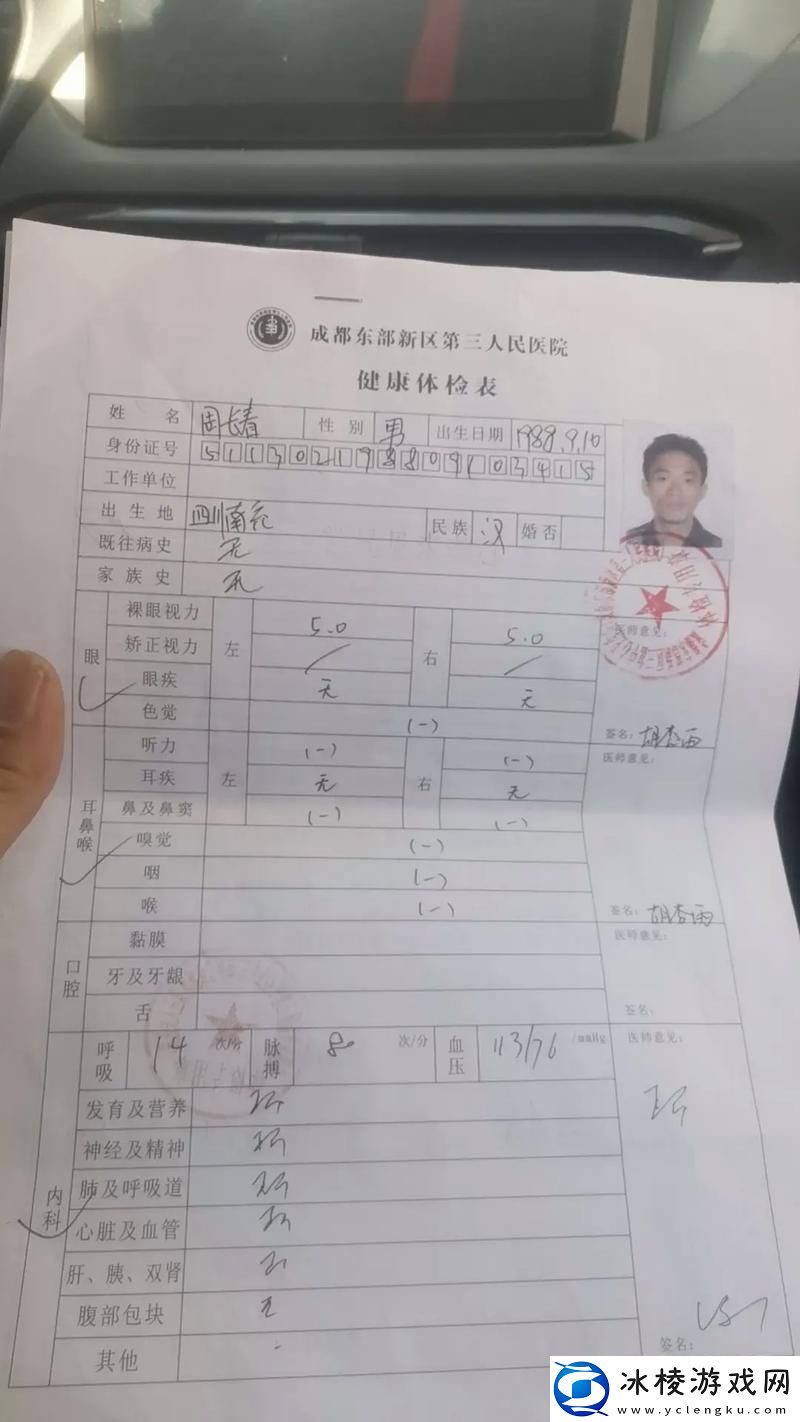 成都东部新区第三人民医院
健康体检表
姓名 周长春 性别 男 出生日期 1988.9.10
身份证号 511302198809103415
工作单位
出生地 四川南充 民族 汉 婚否
既往病史 无
家族史 无
眼 裸眼视力 左 5.0 右 5.0 医师意见:
矫正视力 / /
眼疾 无 无
色觉 (-) 签名: 胡杏雨
耳鼻喉 听力 左 (-) 右 (-) 医师意见:
耳疾 无 无
鼻及鼻窦 (-) (-)
嗅觉 (-)
咽 (-)
喉 (-) 签名: 胡杏雨
口腔 黏膜 医师意见:
牙及牙龈
舌 签名:
内科 呼吸 14 次/分 脉搏 80 次/分 血压 113/76 /mmHg 医师意见:
发育及营养
神经及精神
肺及呼吸道
心脏及血管
肝、胰、双肾
腹部包块 无
其他 - 签名:
冰棱游戏网
www.yclengku.com